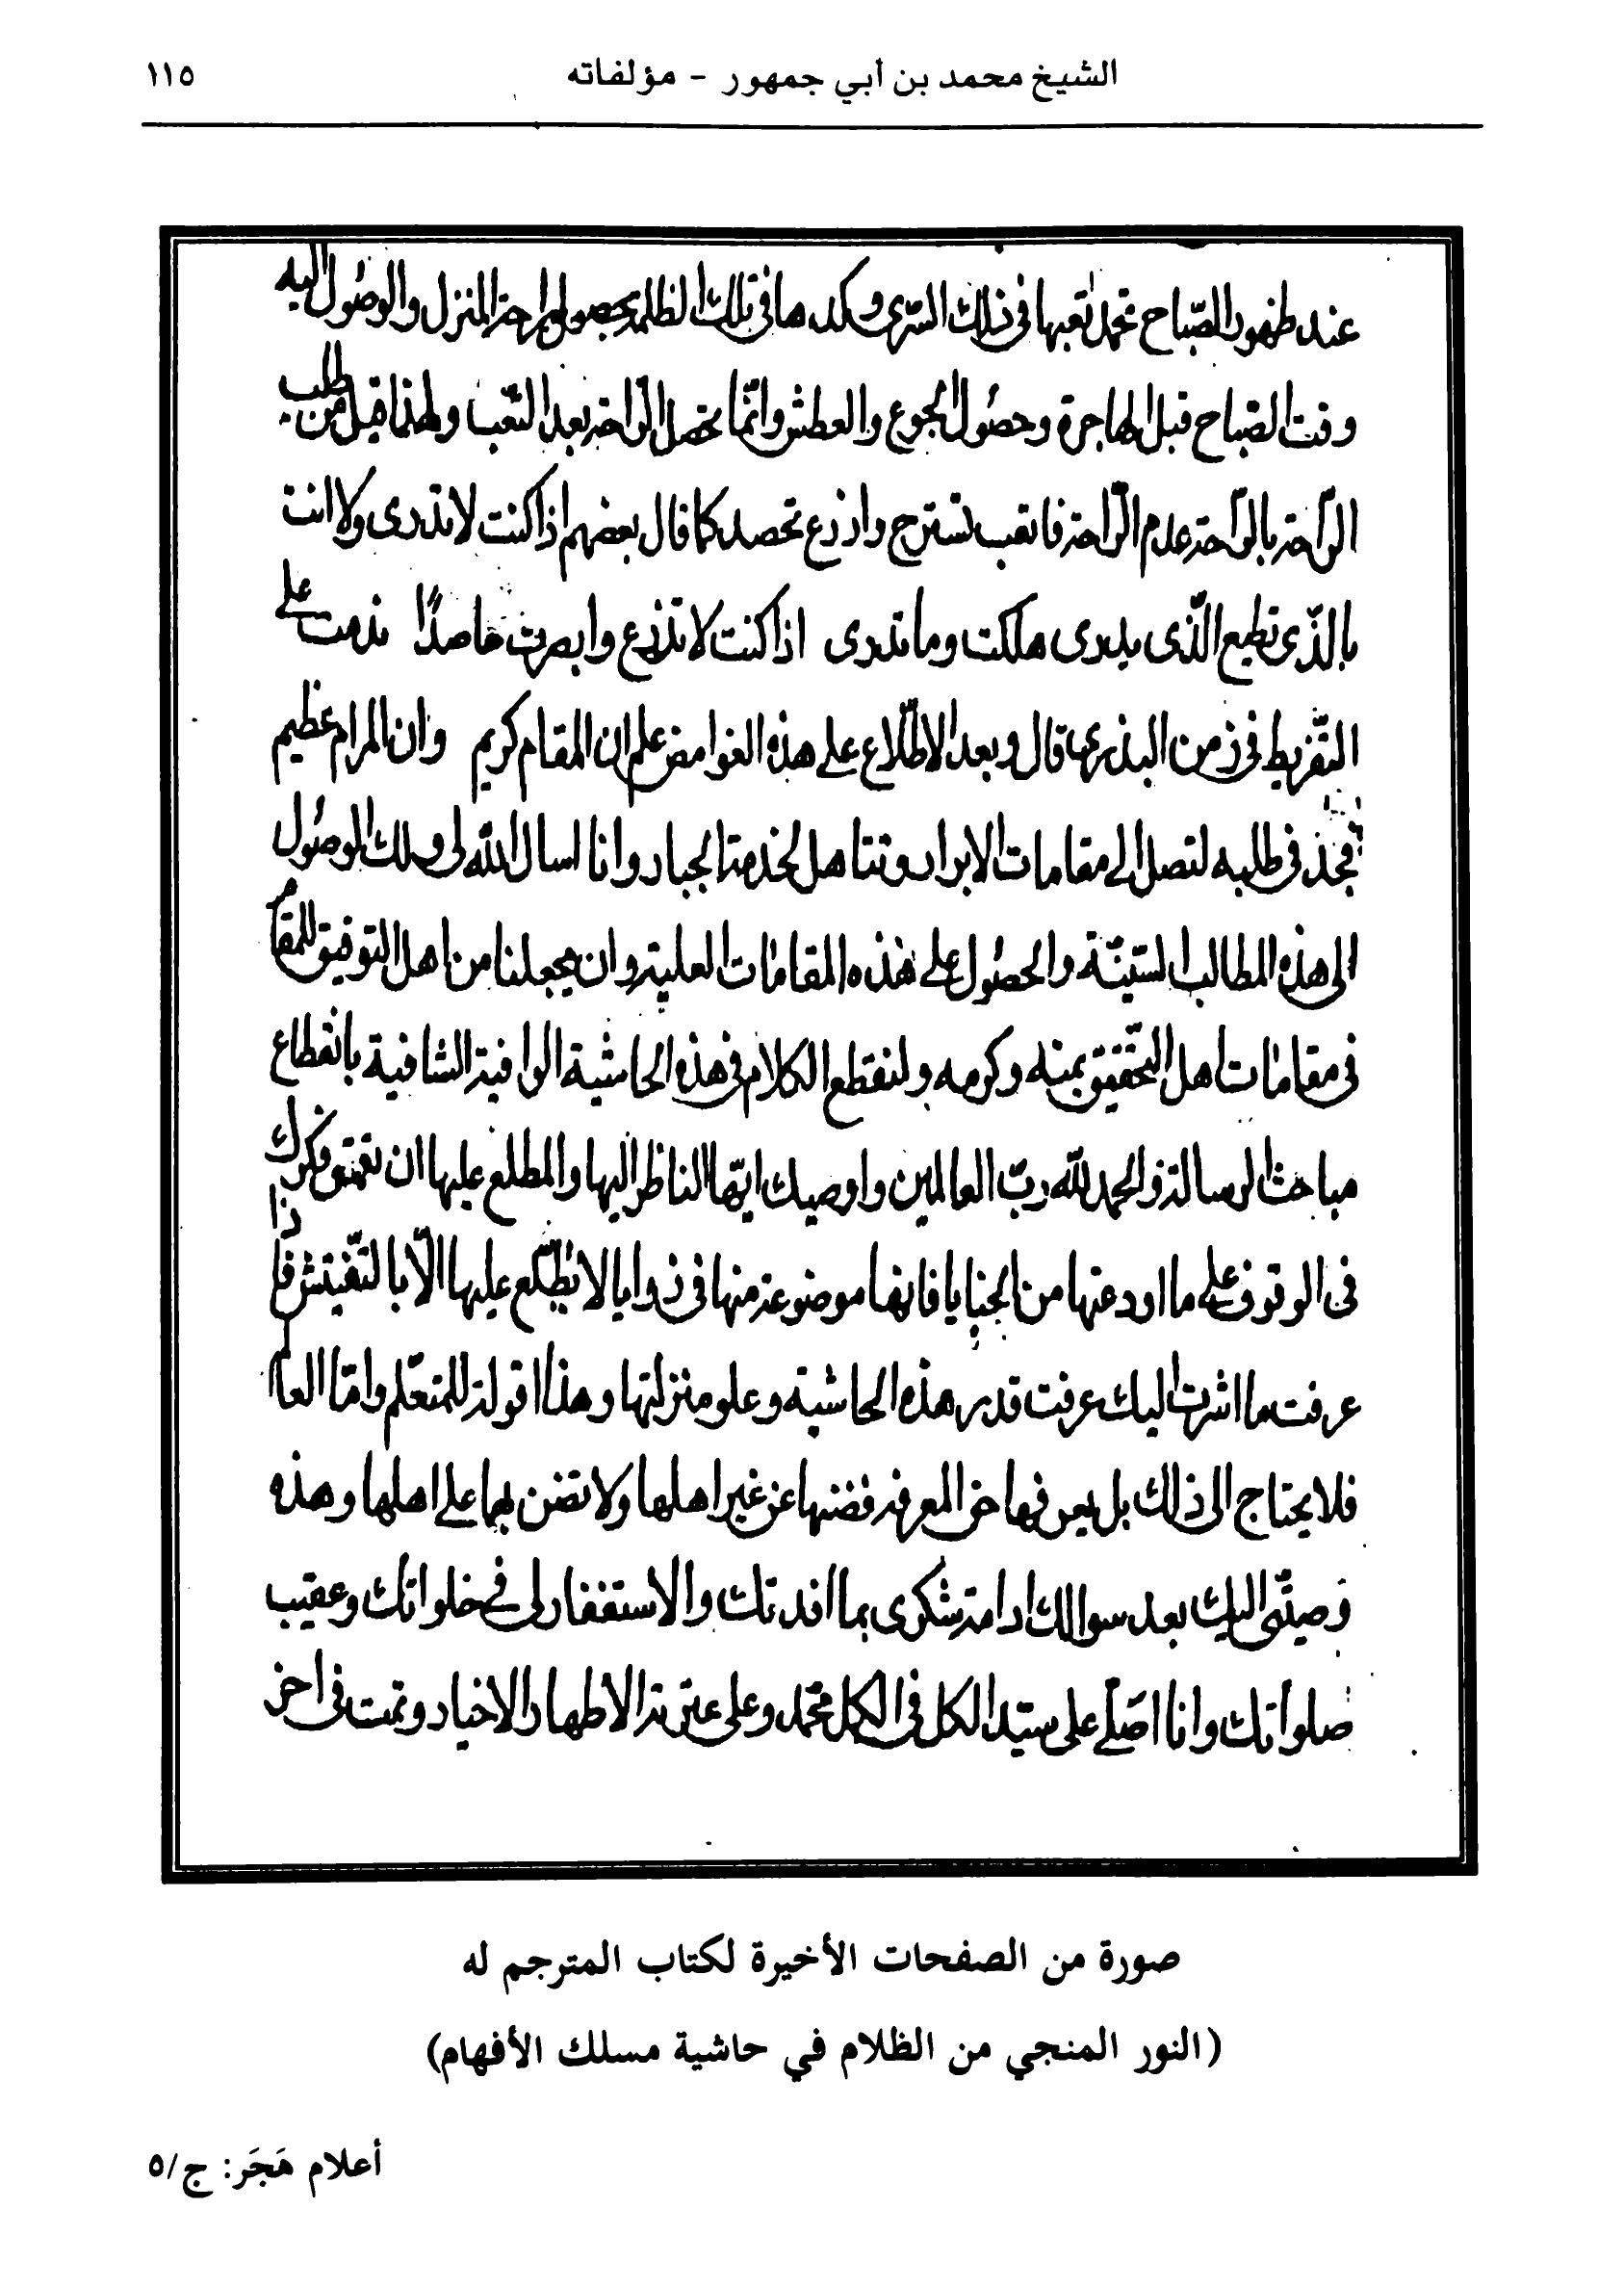 الشيخ محمد بن أبي جمهور - مؤلفاته ١١٥
عند ظهور الصّباح تحمد تعبها فى ذلك السّرى وكدها فى تلك الظلمة بحصولها راحة المنزل والوصُول اليه
وقت الصّباح قبل الهاجرة وحصُول الجوع والعطش وانّما تحصل الرّاحة بعد التّعب ولهذا قيل من طلب
الرّاحة بالرّاحة عدم الرّاحة فاتعب تسترح وازرع تحصد كما قال بعضهم اذا كنت لا تدرى ولا انت
بالذّى تطيع الّذى يدرى هلكت وما تدرى اذا كنت لا تزرع وابصرت حاصدًا ندمت على
التّفريط فى زمن البذر قال وبعد الاطّلاع على هذه الغوامض علم ان المقام كريم وان المرام عظيم
فجد فى طلبه لتصل الى مقامات الابرار وتتاهل لخدمة الجبار وانا اسال الله لى ولك الوصُول
الى هذه المطالب السّنيّة والحصُول على هذه المقامات العلية وان يجعلنا من اهل التوفيق للمقام
فى مقامات اهل التّحقيق بمنه وكرمه ولنقطع الكلام فى هذه الحاشية الوافية الشافية بانقطاع
مباحث الرسالة والحمد لله ربّ العالمين واوصيك ايّها الناظر اليها والمطلع عليها ان تعمق فكرك
فى الوقوف على ما اودعتها من الخبايا فانها موضوعة منها فى زوايا لا يطّلع عليها الّا بالتّفتيش فاذا
عرفت ما اشرت اليك عرفت قدر هذه الحاشية وعلو منزلتها وهذا اقوله للمتعلّم وامّا العالم
فلا يحتاج الى ذلك بل يعرفها حق المعرفة فضنها عن غير اهلها ولا تضن بها على اهلها وهذه
وصيتّى اليك بعد سوالك ادامة شكرى بما افدتك والاستغفار لى فى خلواتك وعقيب
صلواتك وانا اصلّى على سيّد الكل فى الكل محمّد وعلى عترته الاطهار الاخيار وتمت فى اخر
صورة من الصفحات الأخيرة لكتاب المترجم له
(النور المنجي من الظلام في حاشية مسلك الأفهام)
أعلام هَجَر: ج/٥